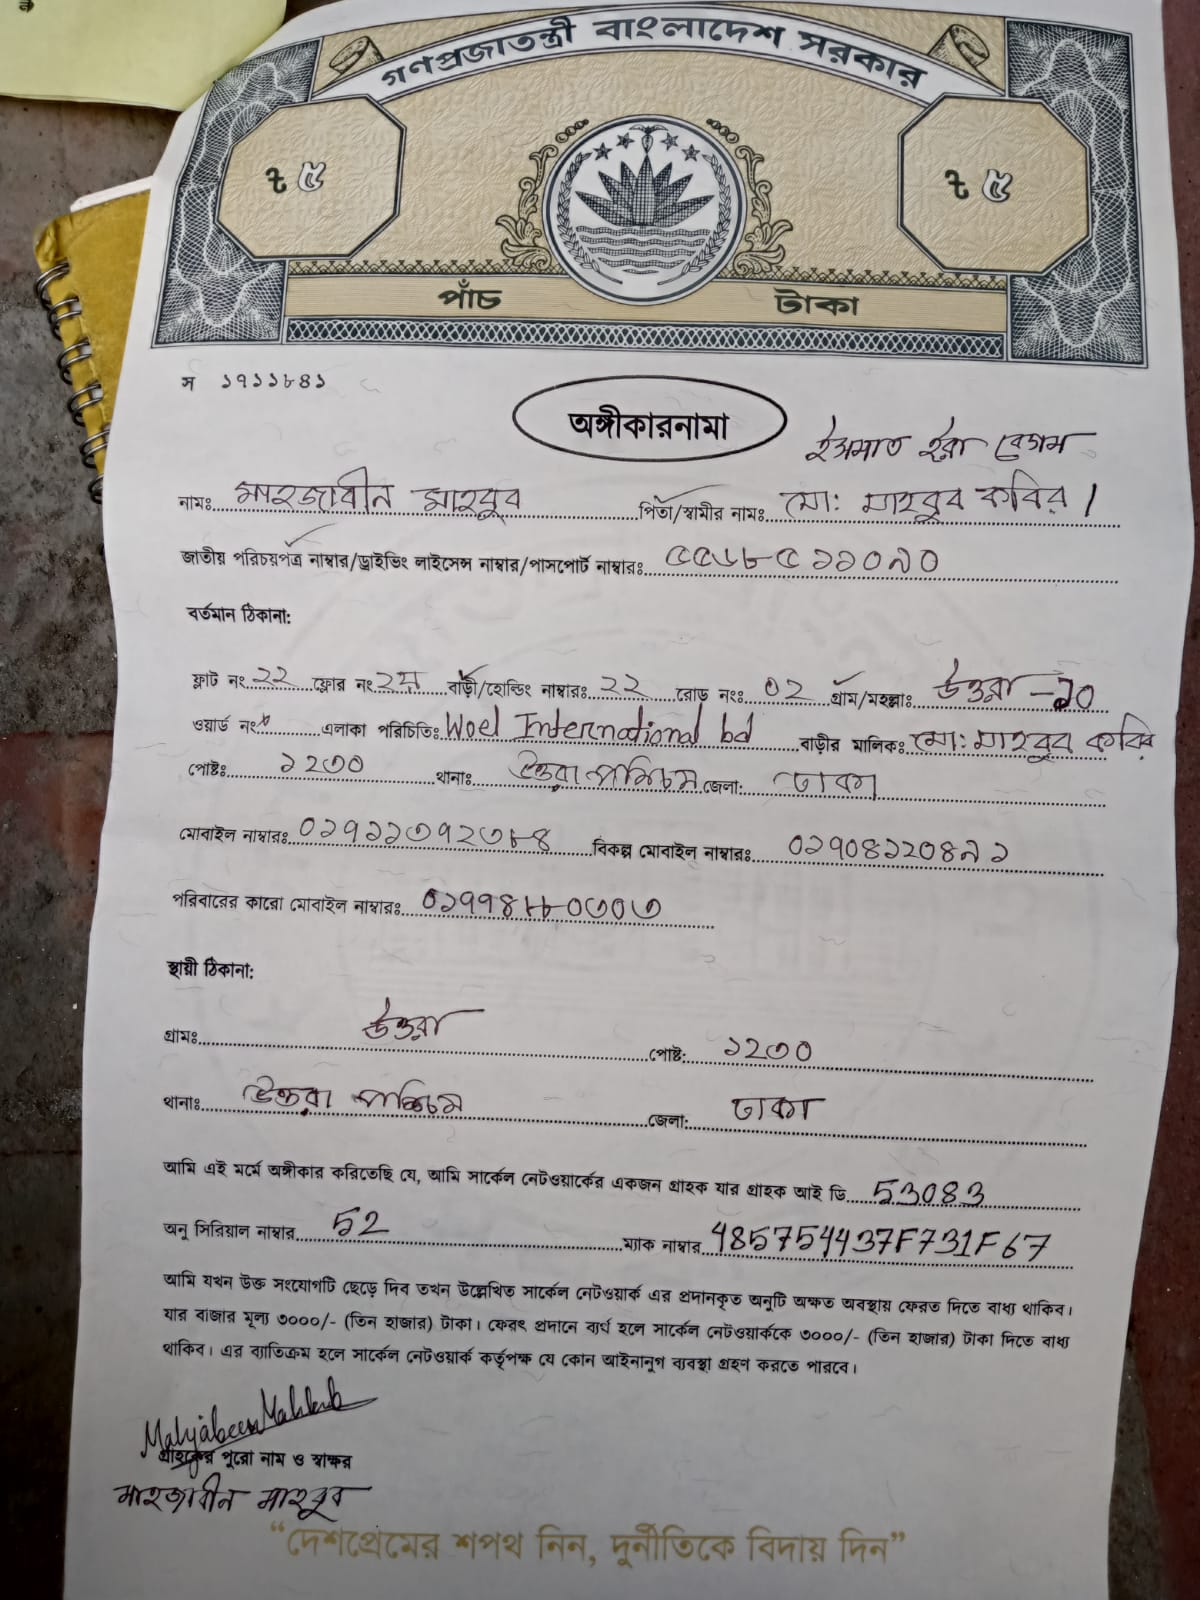 গণপ্রজাতন্ত্রী বাংলাদেশ সরকার
৳ ৫ ৳ ৫
পাঁচ টাকা
স ১৭১১৮৪১
অঙ্গীকারনামা
নামঃ মাহজাবীন মাহবুব পিতা/স্বামীর নাম: মো: মাহবুব কবির
জাতীয় পরিচয়পত্র নাম্বার/ড্রাইভিং লাইসেন্স নাম্বার/পাসপোর্ট নাম্বারঃ ৫৫৬৮৫১১০৯০
বর্তমান ঠিকানা:
ফ্লাট নং ২২ ফ্লোর নং ২য় বাড়ী/হোল্ডিং নাম্বারঃ ২২ রোড নংঃ ০২ গ্রাম/মহল্লাঃ উত্তরা -১০
ওয়ার্ড নংঃ এলাকা পরিচিতিঃ Woel International bd বাড়ীর মালিকঃ মো: মাহবুব কবির
পোষ্টঃ ১২৩০ থানাঃ উত্তরা পশ্চিম জেলা: ঢাকা
মোবাইল নাম্বারঃ ০১৭১১৩৭২৩৮৪ বিকল্প মোবাইল নাম্বারঃ ০১৭০৪১২০৪৯১
পরিবারের কারো মোবাইল নাম্বারঃ ০১৭৭৪৮৮০৩০৩
স্থায়ী ঠিকানা:
গ্রামঃ উত্তরা পোষ্ট: ১২৩০
থানাঃ উত্তরা পশ্চিম জেলা: ঢাকা
আমি এই মর্মে অঙ্গীকার করিতেছি যে, আমি সার্কেল নেটওয়ার্কের একজন গ্রাহক যার গ্রাহক আই ডি 53083
অনু সিরিয়াল নাম্বার 52 ম্যাক নাম্বার 485754437F731F67
আমি যখন উক্ত সংযোগটি ছেড়ে দিব তখন উল্লেখিত সার্কেল নেটওয়ার্ক এর প্রদানকৃত অনুটি অক্ষত অবস্থায় ফেরত দিতে বাধ্য থাকিব।
যার বাজার মূল্য ৩০০০/- (তিন হাজার) টাকা। ফেরৎ প্রদানে ব্যর্থ হলে সার্কেল নেটওয়ার্ককে ৩০০০/- (তিন হাজার) টাকা দিতে বাধ্য
থাকিব। এর ব্যাতিক্রম হলে সার্কেল নেটওয়ার্ক কর্তৃপক্ষ যে কোন আইনানুগ ব্যবস্থা গ্রহণ করতে পারবে।
Mahjabeen Mahbub
গ্রাহকের পুরো নাম ও স্বাক্ষর
মাহজাবীন মাহবুব
“দেশপ্রেমের শপথ নিন, দুর্নীতিকে বিদায় দিন”